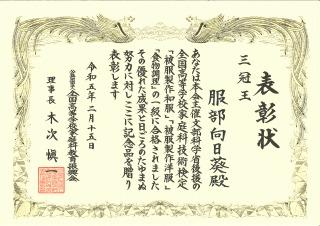 表彰状
三冠王
服部向日葵殿
あなたは本会主催文部科学省後援の
全国高等学校家庭科技術検定
「被服製作和服」、「被服製作洋服」
「食物調理」の一級に合格されました
その優れた成果と日ごろのたゆまぬ
努力に対しここに記念品を贈り
表彰します
令和五年二月十五日
公益財団法人全国高等学校家庭科教育振興会
理事長 木次 愼一